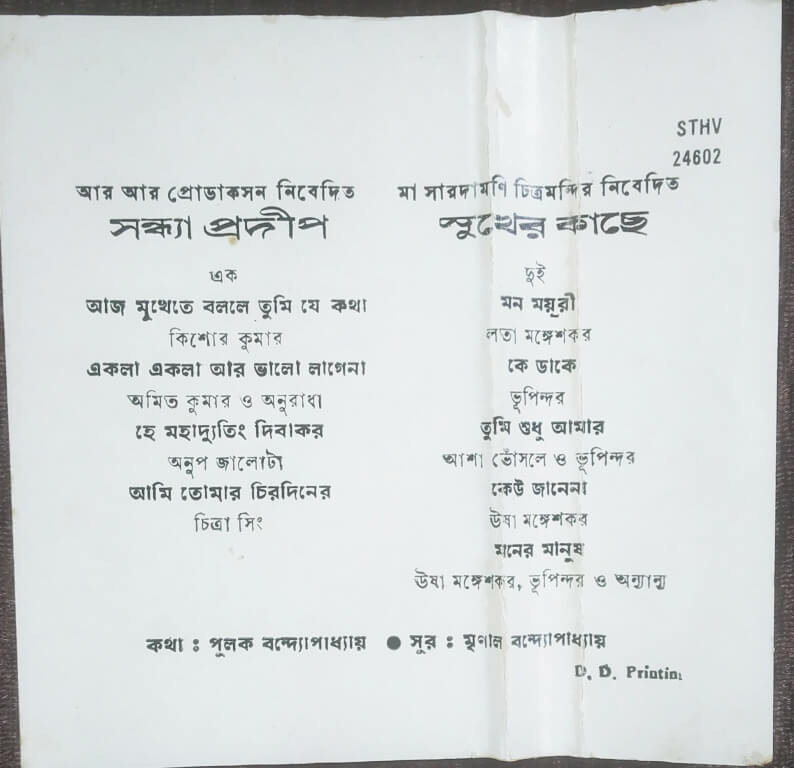 STHV
24602
আর আর প্রোডাকসন নিবেদিত
সন্ধ্যা প্রদীপ
এক
আজ মুখেতে বললে তুমি যে কথা
কিশোর কুমার
একলা একলা আর ভালো লাগেনা
অমিত কুমার ও অনুরাধা
হে মহাদ্যুতিং দিবাকর
অনুপ জালোটা
আমি তোমার চিরদিনের
চিত্রা সিং
মা সারদামণি চিত্রমন্দির নিবেদিত
সুখের কাছে
দুই
মন ময়ূরী
লতা মঙ্গেশকর
কে ডাকে
ভূপিন্দর
তুমি শুধু আমার
আশা ভোঁসলে ও ভূপিন্দর
কেউ জানেনা
ঊষা মঙ্গেশকর
মনের মানুষ
ঊষা মঙ্গেশকর, ভূপিন্দর ও অন্যান্য
কথা : পুলক বন্দ্যোপাধ্যায় ● সুর : মৃণাল বন্দ্যোপাধ্যায়
D. D. Printin